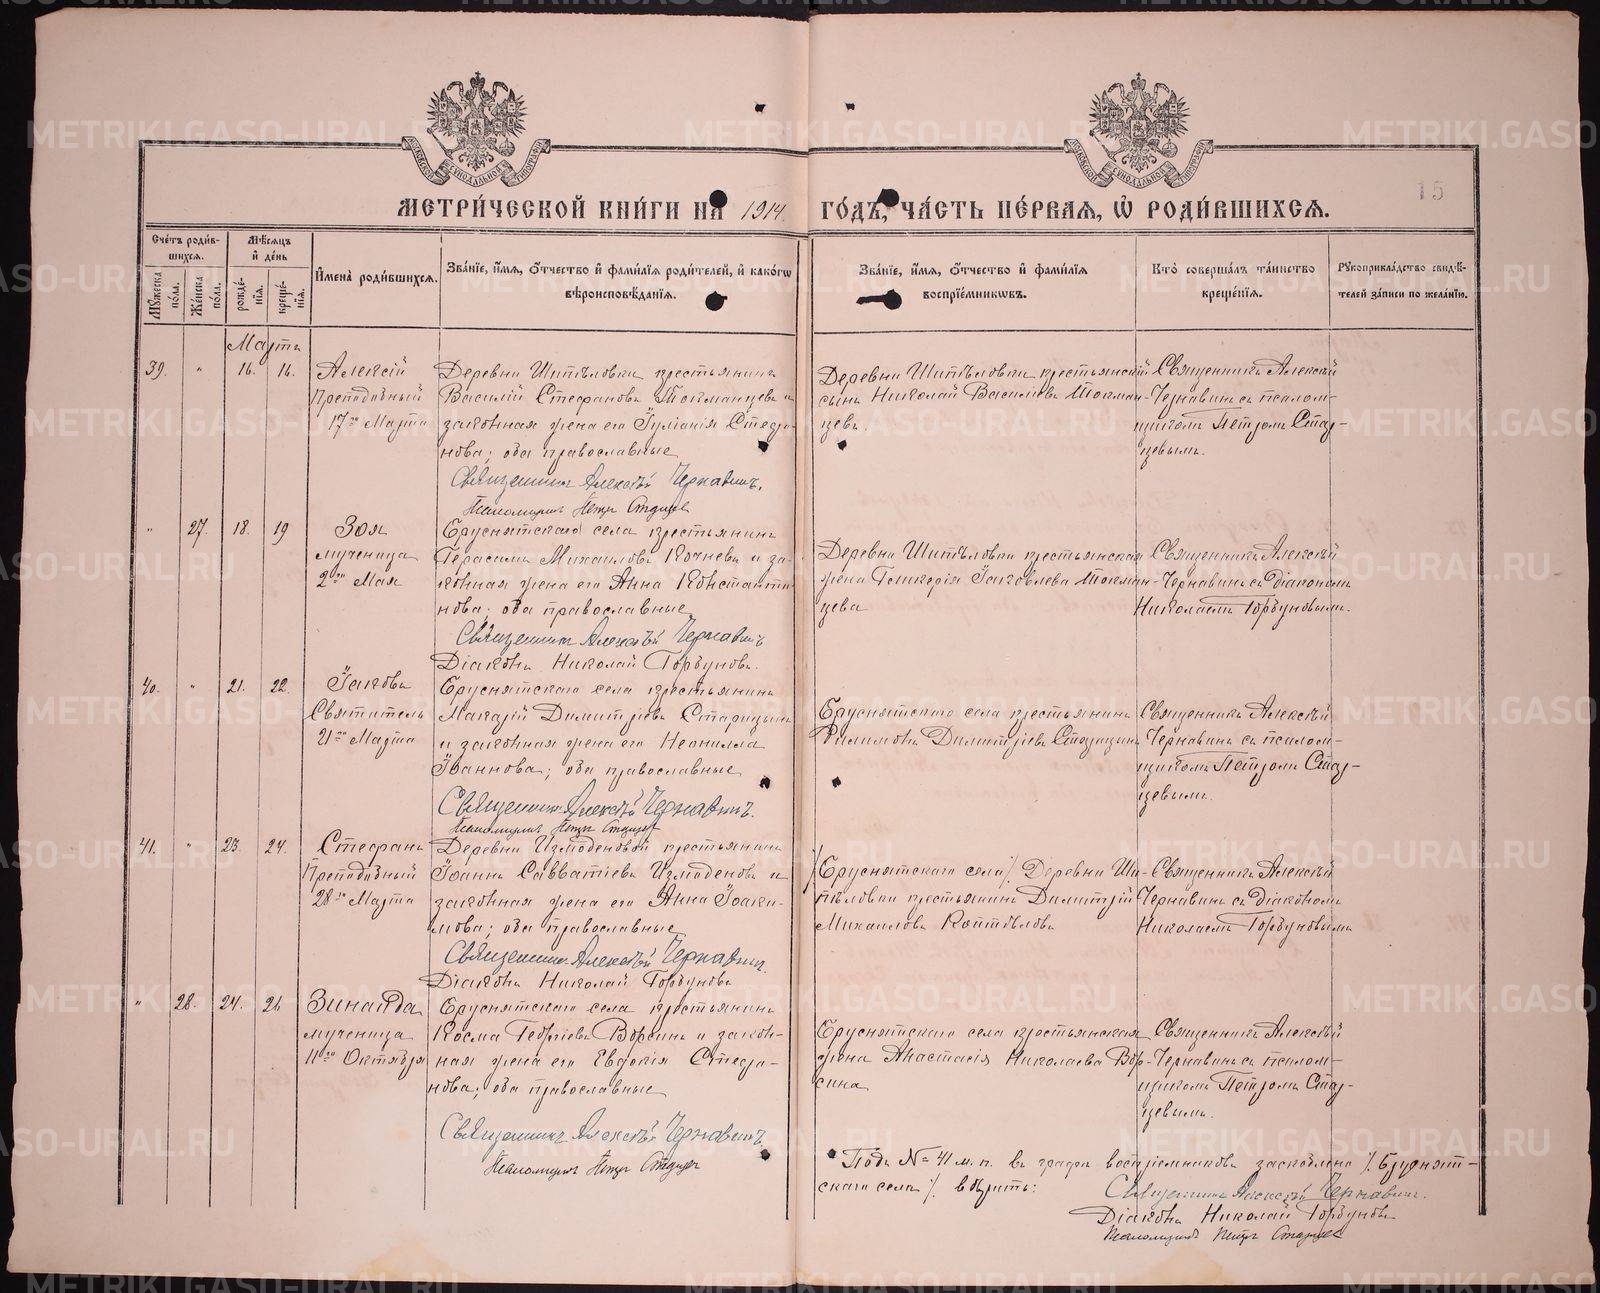 МЕТРИ́ЧЕСКОЙ КНИ́ГИ НА 1914. ГО́ДЪ, ЧА́СТЬ ПЕ́РВАЯ, Ѡ РОДИ́ВШИХСЯ.
15
Сче́тъ роди́в-
шихся.
Мꙋ́жеска по́ла.
Же́нска по́ла.
Мѣ́сяцъ
и҆ де́нь
рожде́-
нїѧ.
креще́-
нїѧ.
И҆мена̀ роди́вшихся.
Зва́нїе, и҆́мя, ѻ҆́тчество и҆ фами́лїя роди́телей, и҆ како́гѡ
вѣроисповѣ́данїя.
Зва́нїе, и҆́мя, ѻ҆́тчество и҆ фами́лїя
воспрїе́мникѡвъ.
Кто̀ соверша́лъ та́инство
креще́нїя.
Рꙋкоприкла́дство свидѣ́-
телей за́писи по жела́нїю.
Мартъ
39. " 16. 16.
Алексій
Преподобный
17го Марта
Деревни Шипѣловки крестьянинъ
Василій Стефановъ Токманцевъ и
законная жена его Іуліанія Стефа-
нова; оба православные
Священникъ Алексѣй Чернавинъ.
Псаломщикъ Петръ Старцев
Деревни Шипѣловки крестьянскій
сынъ Николай Васильевъ Токман-
цевъ.
Священникъ Алексѣй
Чернавинъ съ псалом-
щикомъ Петромъ Стар-
цевымъ.
" 27. 18. 19
Зоя
мученица
2го Мая
Бруснятскаго села крестьянинъ
Герасимъ Михаиловъ Кочневъ и за-
конная жена его Анна Константи-
нова; оба православные
Священникъ Алексѣй Чернавинъ
Діаконъ Николай Горбуновъ.
Деревни Шипѣловки крестьянская
жена Гликерія Іаковлева Токман-
цева
Священникъ Алексѣй
Чернавинъ съ Діакономъ
Николаемъ Горбуновымъ.
40. " 21. 22.
Іаковъ
Святитель
21го Марта
Бруснятскаго села крестьянинъ
Макарій Димитріевъ Старицынъ
и законная жена его Неонилла
Іоаннова; оба православные
Священникъ Алексѣй Чернавинъ.
Псаломщикъ Петръ Старцев
Бруснятскаго села крестьянинъ
Филимонъ Димитріевъ Старицынъ
Священникъ Алексѣй
Чернавинъ съ псалом-
щикомъ Петромъ Стар-
цевымъ.
41. " 23. 24.
Стефанъ
Преподобный
28го Марта
Деревни Измоденовой крестьянинъ
Іоаннъ Савватіевъ Измоденовъ и
законная жена его Анна Іоаки-
мова; оба православные
Священникъ Алексѣй Чернавинъ.
Діаконъ Николай Горбуновъ
/Бруснятскаго села/ Деревни Ши-
пѣловки крестьянинъ Димитрій
Михаиловъ Коптѣловъ
Священникъ Алексѣй
Чернавинъ съ Діакономъ
Николаемъ Горбуновымъ
" 28. 24. 26
Зинаида
мученица
11го Октября
Бруснятскаго села крестьянинъ
Косма Георгіевъ Ворсинъ и закон-
ная жена его Евдокія Стефа-
нова; оба православные
Священникъ Алексѣй Чернавинъ
Псаломщикъ Петръ Старцев
Бруснятскаго села крестьянская
жена Анастасія Николаева Вор-
сина
Священникъ Алексѣй
Чернавинъ съ псалом-
щикомъ Петромъ Стар-
цевымъ.
Подъ № 41 м. п. въ графѣ воспріемниковъ заскоблено /Бруснят-
скаго села/, вѣрить:
Священникъ Алексѣй Чернавин.
Діаконъ Николай Горбуновъ
Псаломщикъ Петръ Старцев
METRIKI.GASO-URAL.RU